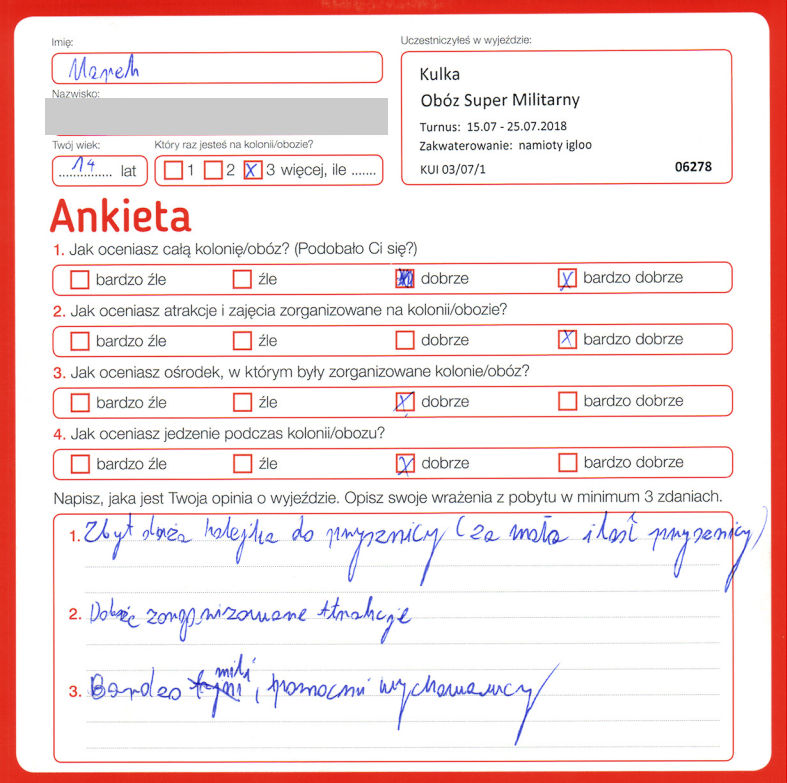 Imię:
Uczestniczyłeś w wyjeździe:
Marek
Kulka
Obóz Super Militarny
Nazwisko:
Turnus: 15.07 - 25.07.2018
Zakwaterowanie: namioty igloo
KUI 03/07/1
06278
Twój wiek:
Który raz jesteś na kolonii/obozie?
14 lat
1 2 X 3 więcej, ile .......
Ankieta
1. Jak oceniasz całą kolonię/obóz? (Podobało Ci się?)
bardzo źle źle dobrze X bardzo dobrze
2. Jak oceniasz atrakcje i zajęcia zorganizowane na kolonii/obozie?
bardzo źle źle dobrze X bardzo dobrze
3. Jak oceniasz ośrodek, w którym były zorganizowane kolonie/obóz?
bardzo źle źle X dobrze bardzo dobrze
4. Jak oceniasz jedzenie podczas kolonii/obozu?
bardzo źle źle X dobrze bardzo dobrze
Napisz, jaka jest Twoja opinia o wyjeździe. Opisz swoje wrażenia z pobytu w minimum 3 zdaniach.
1. Zbyt duża kolejka do prysznicy (za mała ilość prysznicy)
2. Dobrze zorganizowane atrakcje
3. Bardzo mili, pomocni wychowawcy